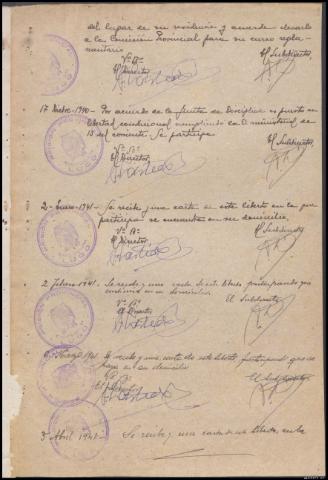 del lugar de su residencia y acuerda elevarlo
a la Comisión Provincial para su curso regla-
mentario
Vº Bº
El Director,
El Subdirector
17 Dicbre-1940- Por acuerdo de la Junta de Disciplina es puesto en
libertad condicional cumpliendo O. ministerial de
13 del corriente. Se participa
Vº Bº
El Director,
El Subdirector,
2- Enero-1941- Se recibe una carta de este liberto en la que
participa se encuentra en su domicilio,
Vº Bº
El Director,
El Subdirector
2 Febrero 1941. Se recibe una carta de este liberto participando que
continua en su domicilio
Vº Bº
El Director
El Subdirector
Marzo 1941 Se recibe una carta de este liberto participando que se
halla en su domicilio
Vº Bº
El Director
El Subdirector
3 Abril 1941- Se recibe una carta de este liberto, en la
LUGO